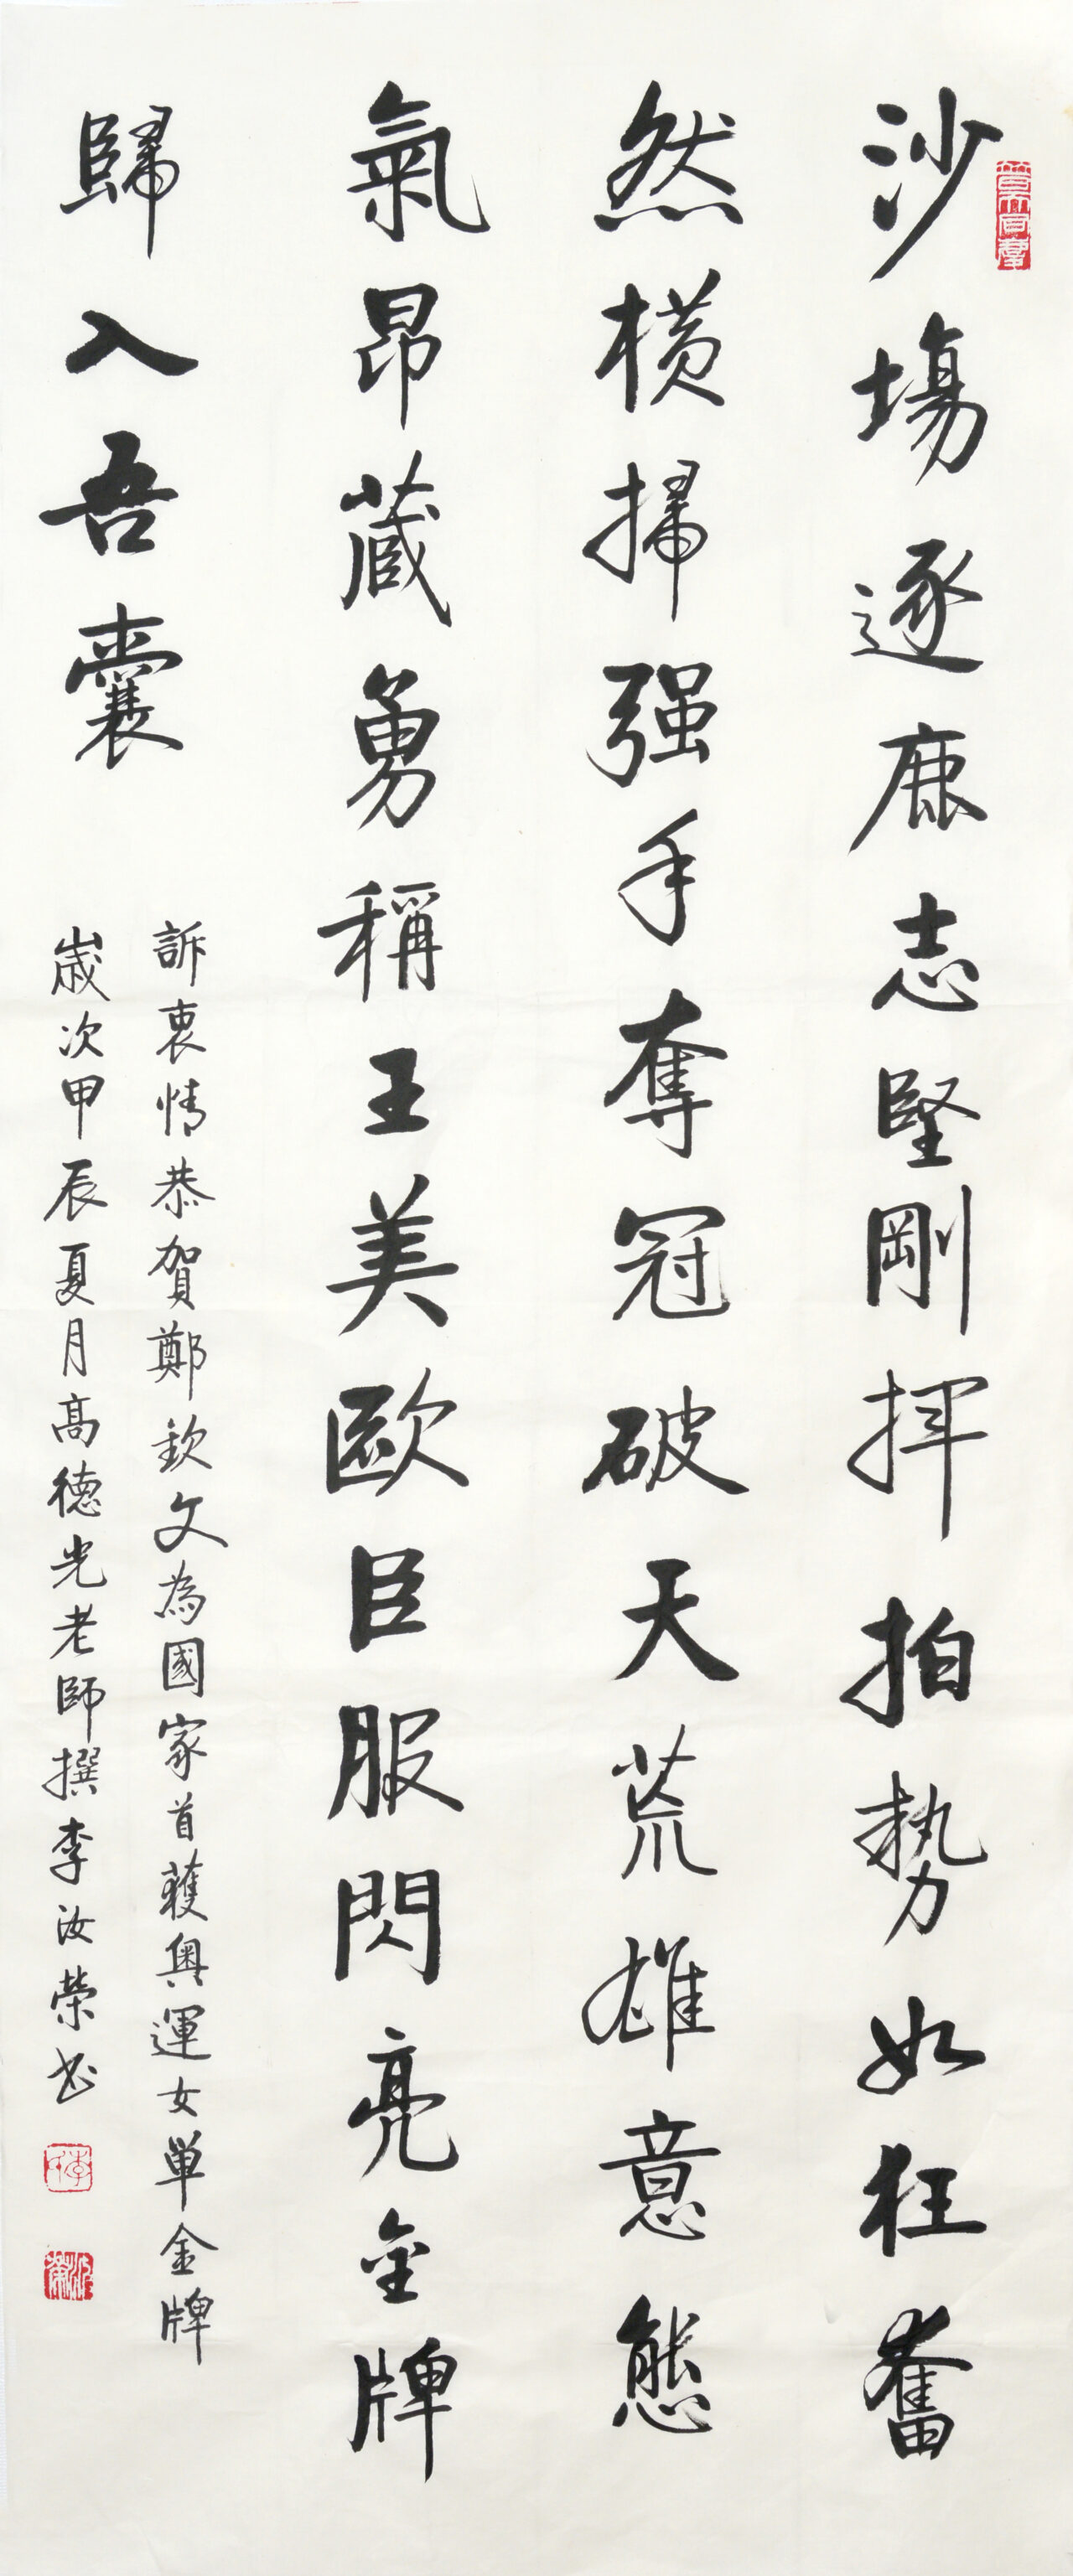 沙場逐鹿志堅剛揮拍勢如狂奮
然橫掃强手奪冠破天荒雄意態
氣昂藏勇稱王美歐臣服閃亮金牌
歸入吾囊
訴衷情恭賀鄭欽文為國家首獲奧運女單金牌
歲次甲辰夏月高德光老師撰李汝榮书